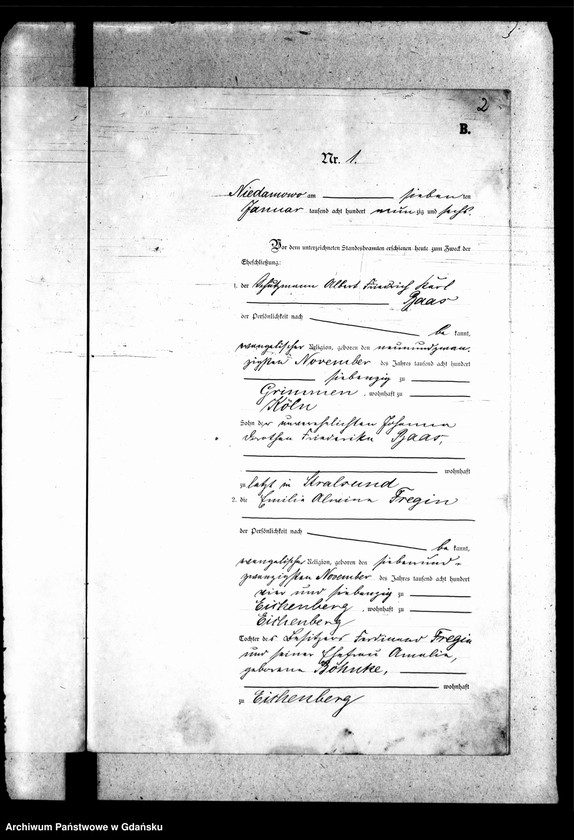 2
B.
Nr. 1.
Niedamowo am sieben ten
Januar tausend acht hundert neunzig und sechs.
Vor dem unterzeichneten Standesbeamten erschienen heute zum Zweck der
Eheschließung:
1. der Schutzmann Albert Friedrich Karl
Paas
der Persönlichkeit nach
be kannt,
evangelischer Religion, geboren den neunundzwan-
zigsten November des Jahres tausend acht hundert
siebenzig zu
Grimmen, wohnhaft zu
Köln
Sohn der unverehelichten Johanna
Dorothea Friederika Paas,
wohnhaft
zuletzt in Stralsund
2. die Emilie Alwine Fregin
der Persönlichkeit nach
be kannt,
evangelischer Religion, geboren den siebenund-
zwanzigsten November des Jahres tausend acht hundert
vier und siebenzig zu
Eichenberg, wohnhaft zu
Eichenberg
Tochter des Besitzers Ferdinand Fregin
und seiner Ehefrau Amalie,
geborene Böhnke,
wohnhaft
zu Eichenberg
Archiwum Państwowe w Gdańsku